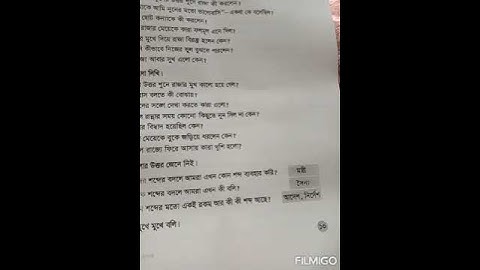 উত্তর শুনে রাজা কী করলেন?
আমি নুনের মতো ভালোবাসি"—একথা কে বলেছিল?
ছোট কন্যাকে কী করলেন?
রাজার মেয়েকে কারা ফলমূল এনে দিল?
মুখে দিয়ে রাজা বিরক্ত হলেন কেন?
কীভাবে নিজের ভুল বুঝতে পারলেন?
রাজা আবার সুখ এলো কেন?
লিখি।
উত্তর শুনে রাজার মুখ কালো হয়ে গেল?
বলতে কী বোঝায়?
সঙ্গে দেখা করতে কারা এলো?
রান্নার সময় কোনো কিছুতে নুন দিল না কেন?
বিশ্বাস হয়েছিল কেন?
মেয়েকে বুকে জড়িয়ে ধরলেন কেন?
রাজ্যে ফিরে আসায় কারা খুশি হলো?
উত্তর জেনে নিই।
শব্দের বদলে আমরা এখন কোন শব্দ ব্যবহার করি? মন্ত্রী
শব্দের বদলে আমরা এখন কী বলি? সৈন্য
শব্দের মতো একই রকম আর কী কী শব্দ আছে? আদেশ, নির্দেশ
মুখে মুখে বলি।
১৩
FILMIGO